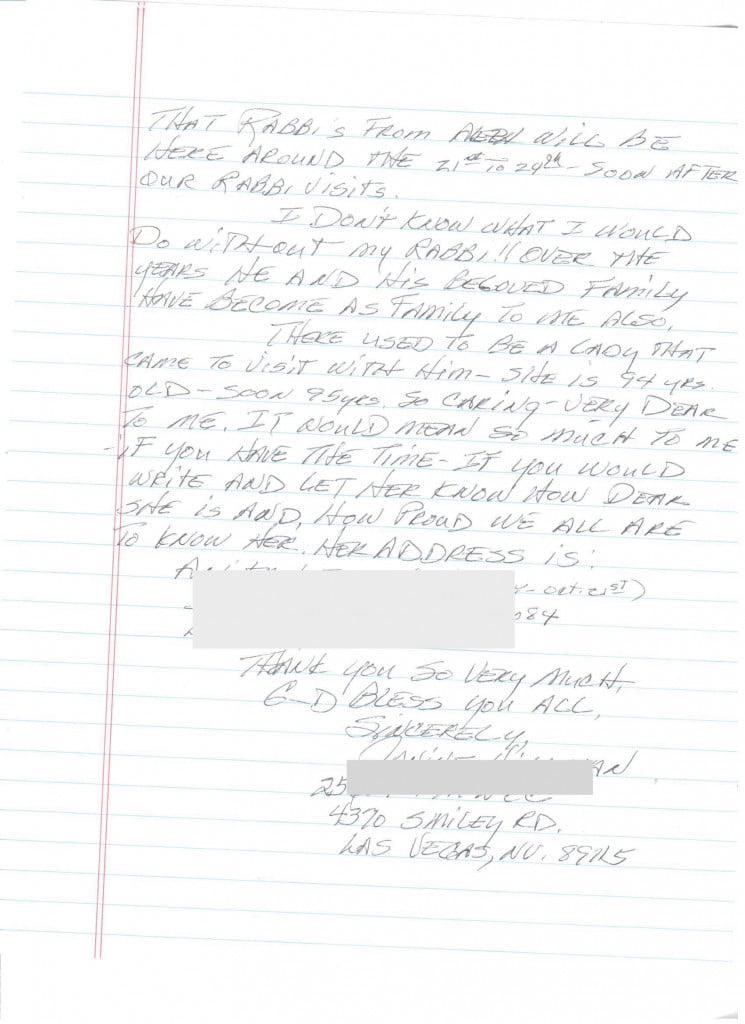 THAT RABBI'S FROM ALEPH WILL BE
HERE AROUND THE 21st TO 29th - SOON AFTER
OUR RABBI VISITS.
I DON'T KNOW WHAT I WOULD
DO WITHOUT MY RABBI!! OVER THE
YEARS HE AND HIS BELOVED FAMILY
HAVE BECOME AS FAMILY TO ME ALSO.
THERE USED TO BE A LADY THAT
CAME TO VISIT WITH HIM - SHE IS 94 YRS.
OLD - SOON 95 YRS. SO CARING - VERY DEAR
TO ME. IT WOULD MEAN SO MUCH TO ME
- IF YOU HAVE THE TIME - IF YOU WOULD
WRITE AND LET HER KNOW HOW DEAR
SHE IS AND, HOW PROUD WE ALL ARE
TO KNOW HER. HER ADDRESS IS:
- OCT. 21ST)
084
THANK YOU SO VERY MUCH,
G-D BLESS YOU ALL,
SINCERELY,
AN
25
4370 SMILEY RD.
LAS VEGAS, NV. 89115